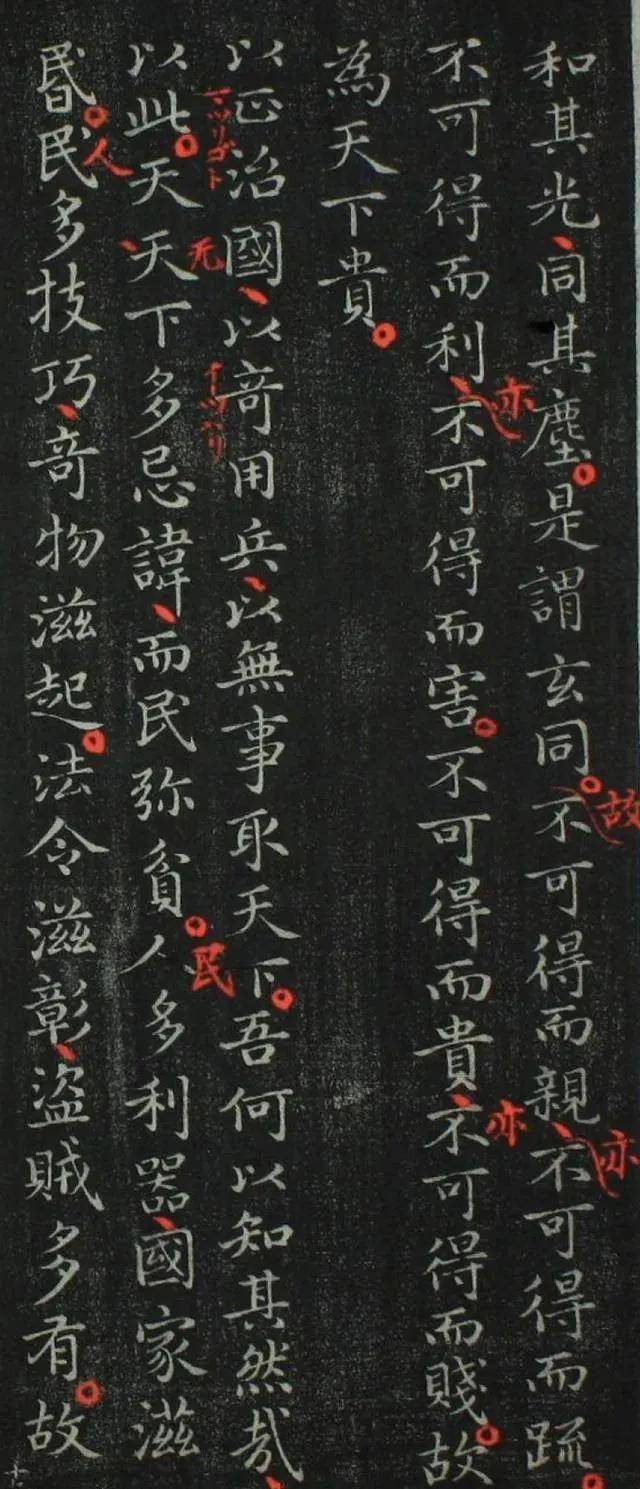 和其光同其塵是謂玄同不可得而親不可得而疏
不可得而利不可得而害不可得而貴不可得而賤故
為天下貴
以正治國以奇用兵以無事取天下吾何以知其然哉
以此天天下多忌諱而民弥貧人多利器國家滋
昬民多技巧奇物滋起法令滋彰盜賊多有故
故
亦
亦
亦
无
民
人